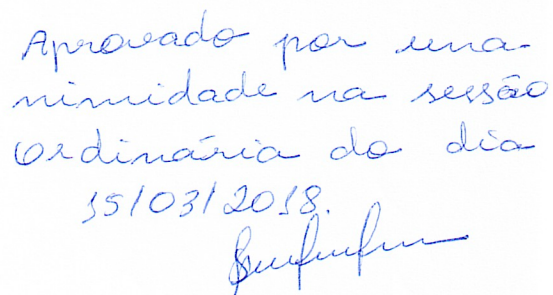 Aprovado por una-
nimidade na sessão
Ordinária do dia
15/03/2018.